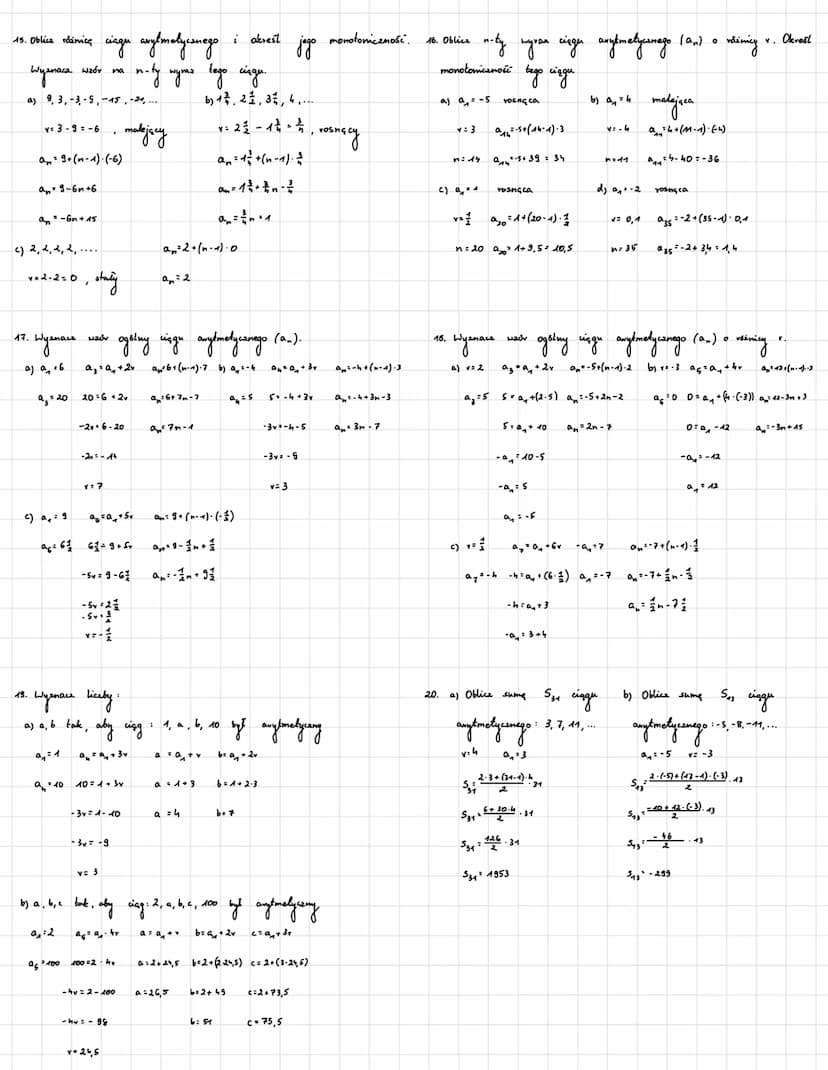 15. Oblicz różnicę ciągu arytmetycznego i określ jego monotoniczność.
Wyznacz wzór na n-ty wyraz tego ciągu.
a) 9, 3, -3, -9, -15, -21, ...
r = 3 - 9 = -6, malejący
aₙ = 9+(n-1)·(-6)
aₙ = 9-6n+6
aₙ = -6n+15
b) 1 3/4, 2 1/2, 3 1/4, 4, ...
r = 2 1/2 - 1 3/4 = 3/4, rosnący
aₙ = 1 3/4 + (n-1) · 3/4
aₙ = 1 3/4 + 3/4 n - 3/4
aₙ = 3/4 n + 1
c) 2, 2, 2, 2, ....
r = 2-2 = 0, stały
aₙ = 2+(n-1)·0
aₙ = 2
16. Oblicz n-ty wyraz ciągu arytmetycznego (aₙ) o różnicy r. Określ
monotoniczność tego ciągu
a) a₁ = -5 rosnąca
r = 3 a₁₄ = -5+(14-1)·3
n = 14 a₁₄ = -5+39 = 34
b) a₁ = 4 malejąca
r = -4 a₁₁ = 4+(11-1)·(-4)
n = 11 a₁₁ = 4-40 = -36
c) a₁ = 1 rosnąca
r = 1/2 a₂₀ = 1+(20-1)·1/2
n = 20 a₂₀ = 1+9,5 = 10,5
d) a₁ = -2 rosnąca
r = 0,1 a₃₅ = -2+(35-1)·0,1
n = 35 a₃₅ = -2+3,4 = 1,4
17. Wyznacz wzór ogólny ciągu arytmetycznego (aₙ).
a) a₁ = 6 a₃ = a₁+2r aₙ = 6+(n-1)·7
a₃ = 20 20 = 6+2r aₙ = 6+7n-7
-2r = 6-20 aₙ = 7n-1
-2r = -14
r = 7
b) a₁ = -4 a₄ = a₁+3r aₙ = -4+(n-1)·3
a₄ = 5 5 = -4+3r aₙ = -4+3n-3
-3r = -4-5 aₙ = 3n-7
-3r = -9
r = 3
c) a₁ = 9 a₆ = a₁+5r aₙ = 9+(n-1)·(-1/2)
a₆ = 6 1/2 6 1/2 = 9+5r aₙ = 9-1/2 n+1/2
-5r = 9-6 1/2 aₙ = -1/2 n+9 1/2
-5r = 2 1/2
-5r = 5/2
r = -1/2
18. Wyznacz wzór ogólny ciągu arytmetycznego (aₙ) o różnicy r.
a) r = 2 a₃ = a₁+2r aₙ = -5+(n-1)·2
a₃ = 5 5 = a₁+(2·5) aₙ = -5+2n-2
5 = a₁+10 aₙ = 2n-7
-a₁ = 10-5
-a₁ = 5
a₁ = -5
b) r = -3 a₅ = a₁+4r aₙ = 12+(n-1)·-3
a₅ = 0 0 = a₁+(4·(-3)) aₙ = 12-3n+3
0 = a₁-12 aₙ = -3n+15
-a₁ = -12
a₁ = 12
c) r = 1/2 a₇ = a₁+6r -a₁ = 7 aₙ = -7+(n-1)·1/2
a₇ = -4 -4 = a₁+(6·1/2) a₁ = -7 aₙ = -7+1/2 n-1/2
-4 = a₁+3 aₙ = 1/2 n-7 1/2
-a₁ = 3+4
19. Wyznacz liczby:
a) a, b tak, aby ciąg: 1, a, b, 10 był arytmetyczny
a₁ = 1 a₄ = a₁+3r a = a₁+r b = a₁+2r
a₄ = 10 10 = 1+3r a = 1+3 b = 1+2·3
-3r = 1-10 a = 4 b = 7
-3r = -9
r = 3
b) a, b, c tak, aby ciąg: 2, a, b, c, 100 był arytmetyczny
a₁ = 2 a₅ = a₁·4r a = a₁+r b = a₁+2r c = a₁+3r
a₅ = 100 100 = 2·4r a = 2+24,5 b = 2+(2·24,5) c = 2+(3·24,5)
-4r = 2-100 a = 26,5 b = 2+49 c = 2+73,5
-4r = -98 b = 51 c = 75,5
r = 24,5
20. a) Oblicz sumę S₃₁ ciągu
arytmetycznego: 3, 7, 11, ...
r = 4 a₁ = 3
S₃₁ = (2·3+(31-1)·4)/2 · 31
S₃₁ = (6+30·4)/2 · 31
S₃₁ = 126/2 · 31
S₃₁ = 1953
b) Oblicz sumę S₁₃ ciągu
arytmetycznego: -5, -8, -11, ...
a₁ = -5 r = -3
S₁₃ = (2·(-5)+(13-1)·(-3))/2 · 13
S₁₃ = (-10+12·(-3))/2 · 13
S₁₃ = -46/2 · 13
S₁₃ = -299